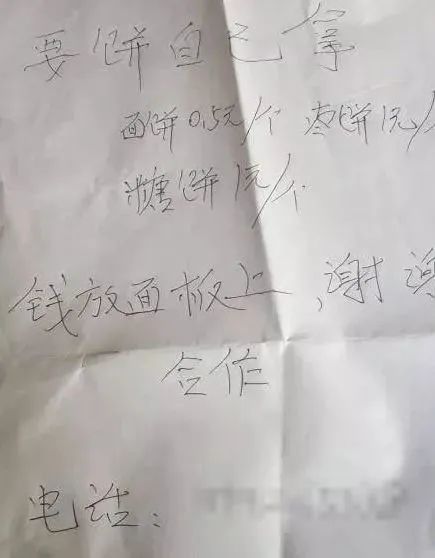 要饼自己拿
面饼0.5元/个 枣饼1元/
糖饼1元/个
钱放面板上,谢谢
合作
电话: